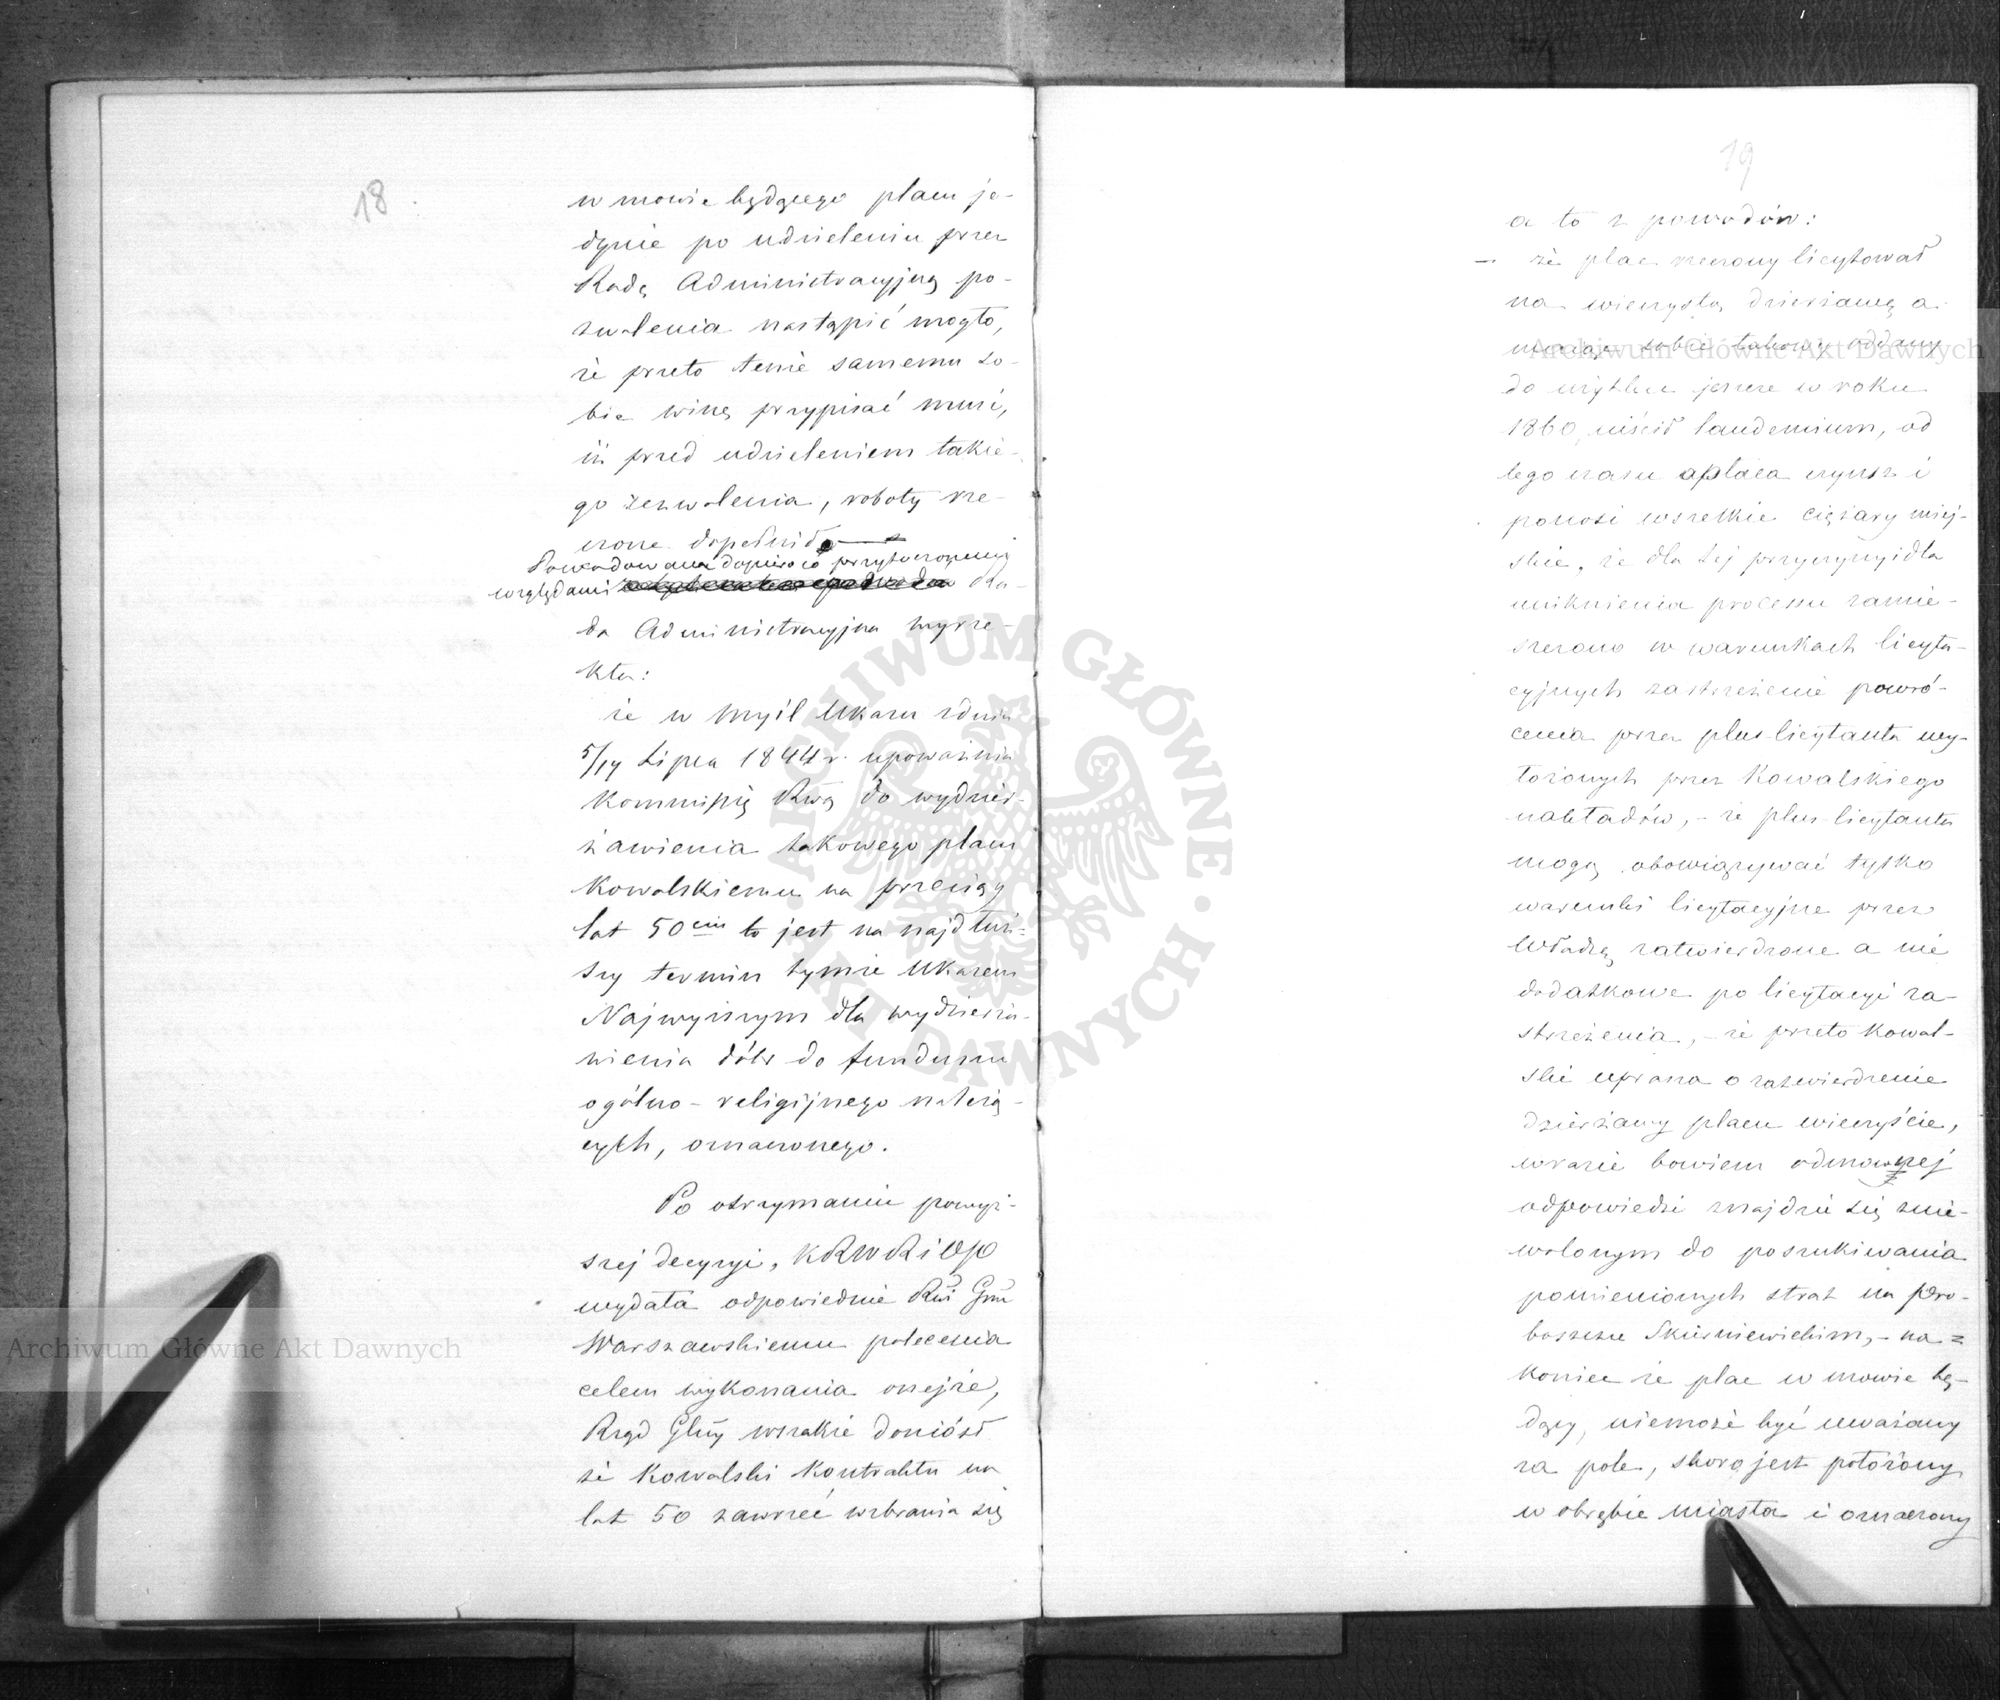 18.
w mowie będącego placu je-
dynie po udzieleniu przez
Radę Administracyjną po-
zwolenia nastąpić mogło,
że przeto tenże samemu so-
bie winę przypisać musi,
iż przed udzieleniem takie-
go zezwolenia, roboty rze-
czone dopełnił
Powodowana dopiero co przytoczonemi
względami Ra-
da Administracyjna wyrze-
kła:
że w myśl Ukazu z dnia
5/17 Lipca 1844 r. upoważnia
Kommissję Rwą do wydzier-
żawienia takowego placu
Kowalskiemu na przeciąg
lat 50ciu to jest na najdłuż-
szy termin tymże Ukazem
Najwyższym dla wydzierża-
wienia dóbr do funduszu
ogólno-religijnego należą-
cych, oznaczonego.
Po otrzymaniu powyż-
szej decyzyi, KRWRiOP
wydała odpowiednie Rwi Gmu
Warszawskiemu polecenia
celem wykonania onejże,
Rząd Glny wszakże doniósł
że Kowalski kontraktu na
lat 50 zawrzeć wzbrania się
19
a to z powodów:
– że plac rzeczony licytował
na wieczystą dzierżawę a
mając sobie takowy oddany
do użytku jeszcze w roku
1860, uiścił laudemium, od
tego czasu opłaca czynsz i
ponosi wszelkie ciężary miej-
skie, że dla tej przyczyny i dla
uniknienia processu zamie-
szczono w warunkach licyta-
cyjnych zastrzeżenie powró-
cenia przez plus-licytanta wy-
łożonych przez Kowalskiego
nakładów, – że plus-licytanta
mogą obowiązywać tylko
warunki licytacyjne przez
Władzę zatwierdzone a nie
dodatkowe po licytacyi za-
strzeżenia, – że przeto Kowal-
ski uprasza o zatwierdzenie
dzierżawy placu wieczyście,
w razie bowiem odmownej
odpowiedzi znajdzie się znie-
wolonym do poszukiwania
pomienionych strat na pro-
boszczu Skierniewickim, – na-
koniec że plac w mowie bę-
dący, niemoże być uważany
za pole, skoro jest położony
w obrębie miasta i oznaczony
Archiwum Główne Akt Dawnych
Archiwum Główne Akt Dawnych
ARCHIWUM GŁÓWNE AKT DAWNYCH